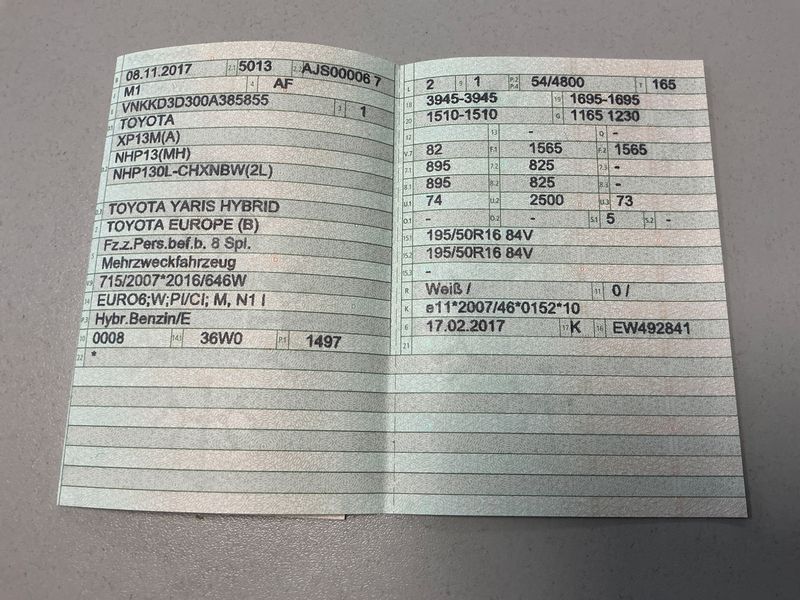 B 08.11.2017 2.1 5013 2.2 AJS00006 7
J M1 4 AF
VNKKD3D300A385855 3 1
D.1 TOYOTA
XP13M(A)
NHP13(MH)
D.2 NHP130L-CHXNBW(2L)
D.3 TOYOTA YARIS HYBRID
2 TOYOTA EUROPE (B)
Fz.z.Pers.bef.b. 8 Spl.
5 Mehrzweckfahrzeug
V.9 715/2007*2016/646W
14 EURO6;W;PI/CI; M, N1 I
P.3 Hybr.Benzin/E
10 0008 14.1 36W0 P.1 1497
22 *
L 2 9 1 P.2 P.4 54/4800 T 165
18 3945-3945 19 1695-1695
20 1510-1510 G 1165 1230
12 13 - Q -
V.7 82 F.1 1565 F.2 1565
7.1 895 7.2 825 7.3 -
8.1 895 8.2 825 8.3 -
U.1 74 U.2 2500 U.3 73
O.1 - O.2 - S.1 5 S.2 -
15.1 195/50R16 84V
15.2 195/50R16 84V
15.3 -
R Weiß / 11 0 /
K e11*2007/46*0152*10
6 17.02.2017 17 K 16 EW492841
21